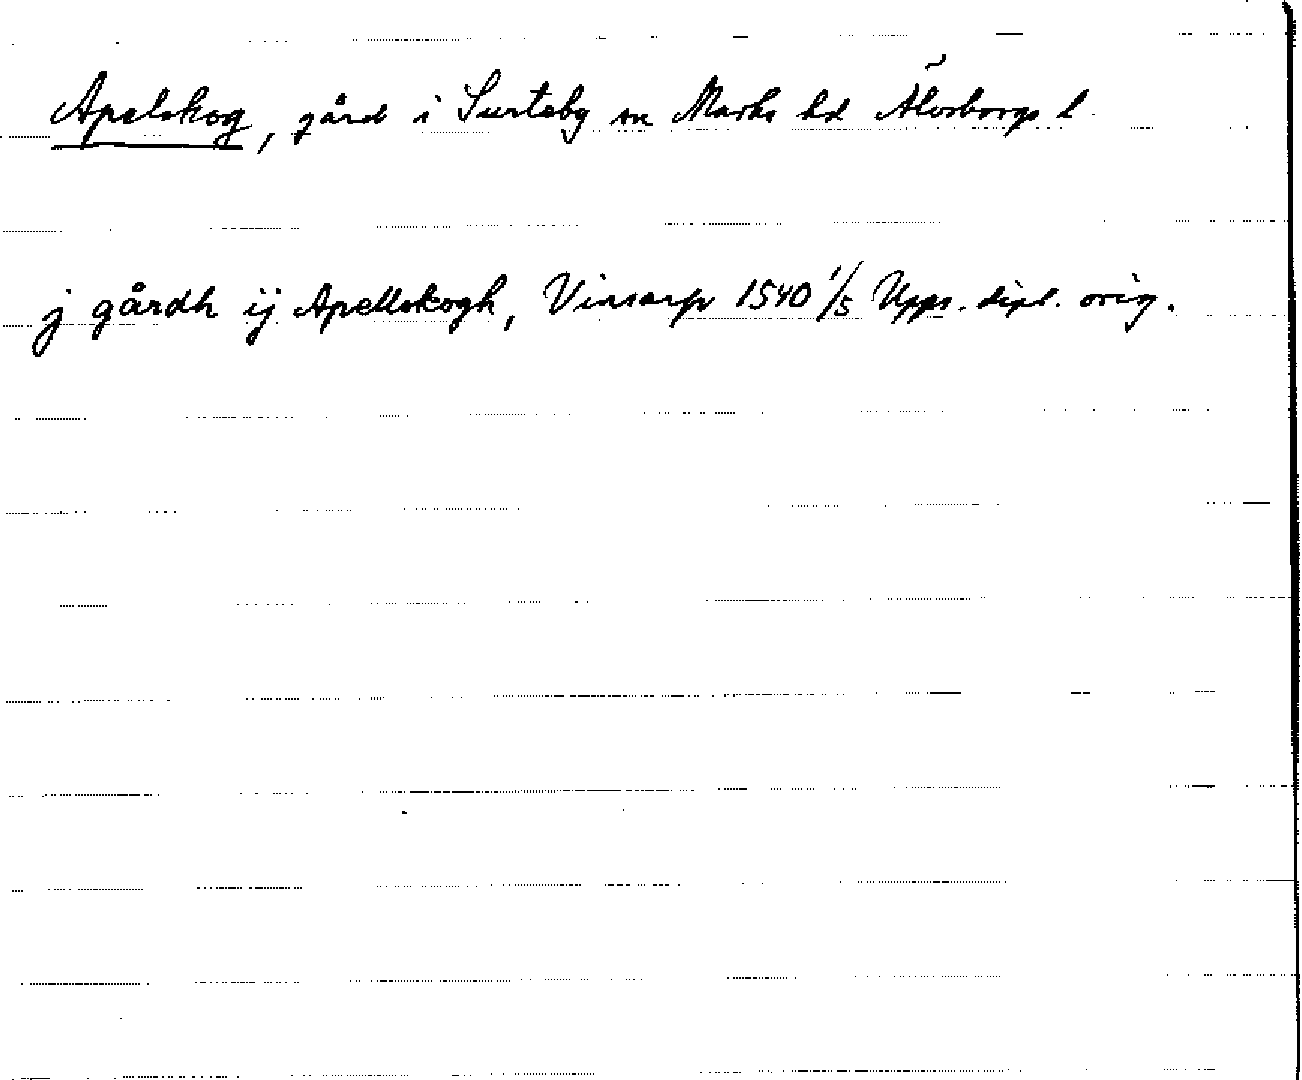 Apelskog, gård i Surteby sn Marks hd Älvsborgs l
j gårdh ij Apellskogh, Vinsarp 1540 1/5 Upps. dipl. orig.